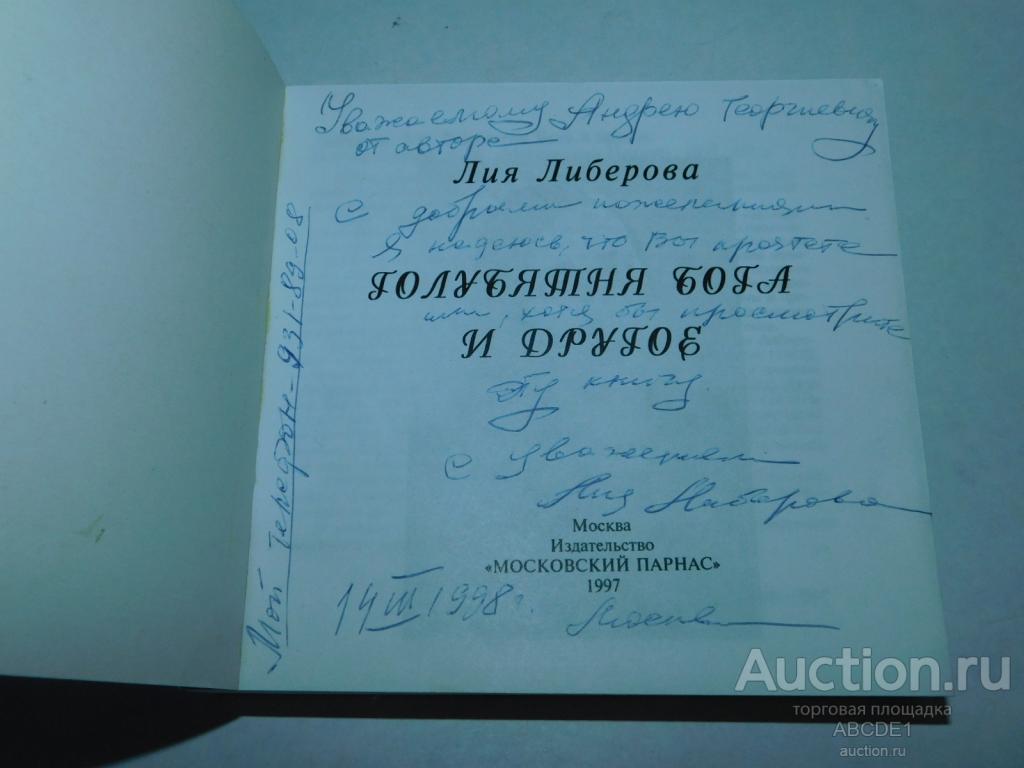 Уважаемому Андрею Георгиевичу
от автора
Лия Либерова
С добрыми пожеланиями
Я надеюсь, что Вы прочтете
ГОЛУБЯТНЯ БОГА
или, хотя бы просмотрите
И ДРУГОЕ
эту книгу.
С уважением
Лия Либерова
Москва
Издательство
«МОСКОВСКИЙ ПАРНАС»
1997
14 III 1998 г.
Москва
Мой телефон - 931-89-08
Auction.ru
торговая площадка
ABCDE1
auction.ru